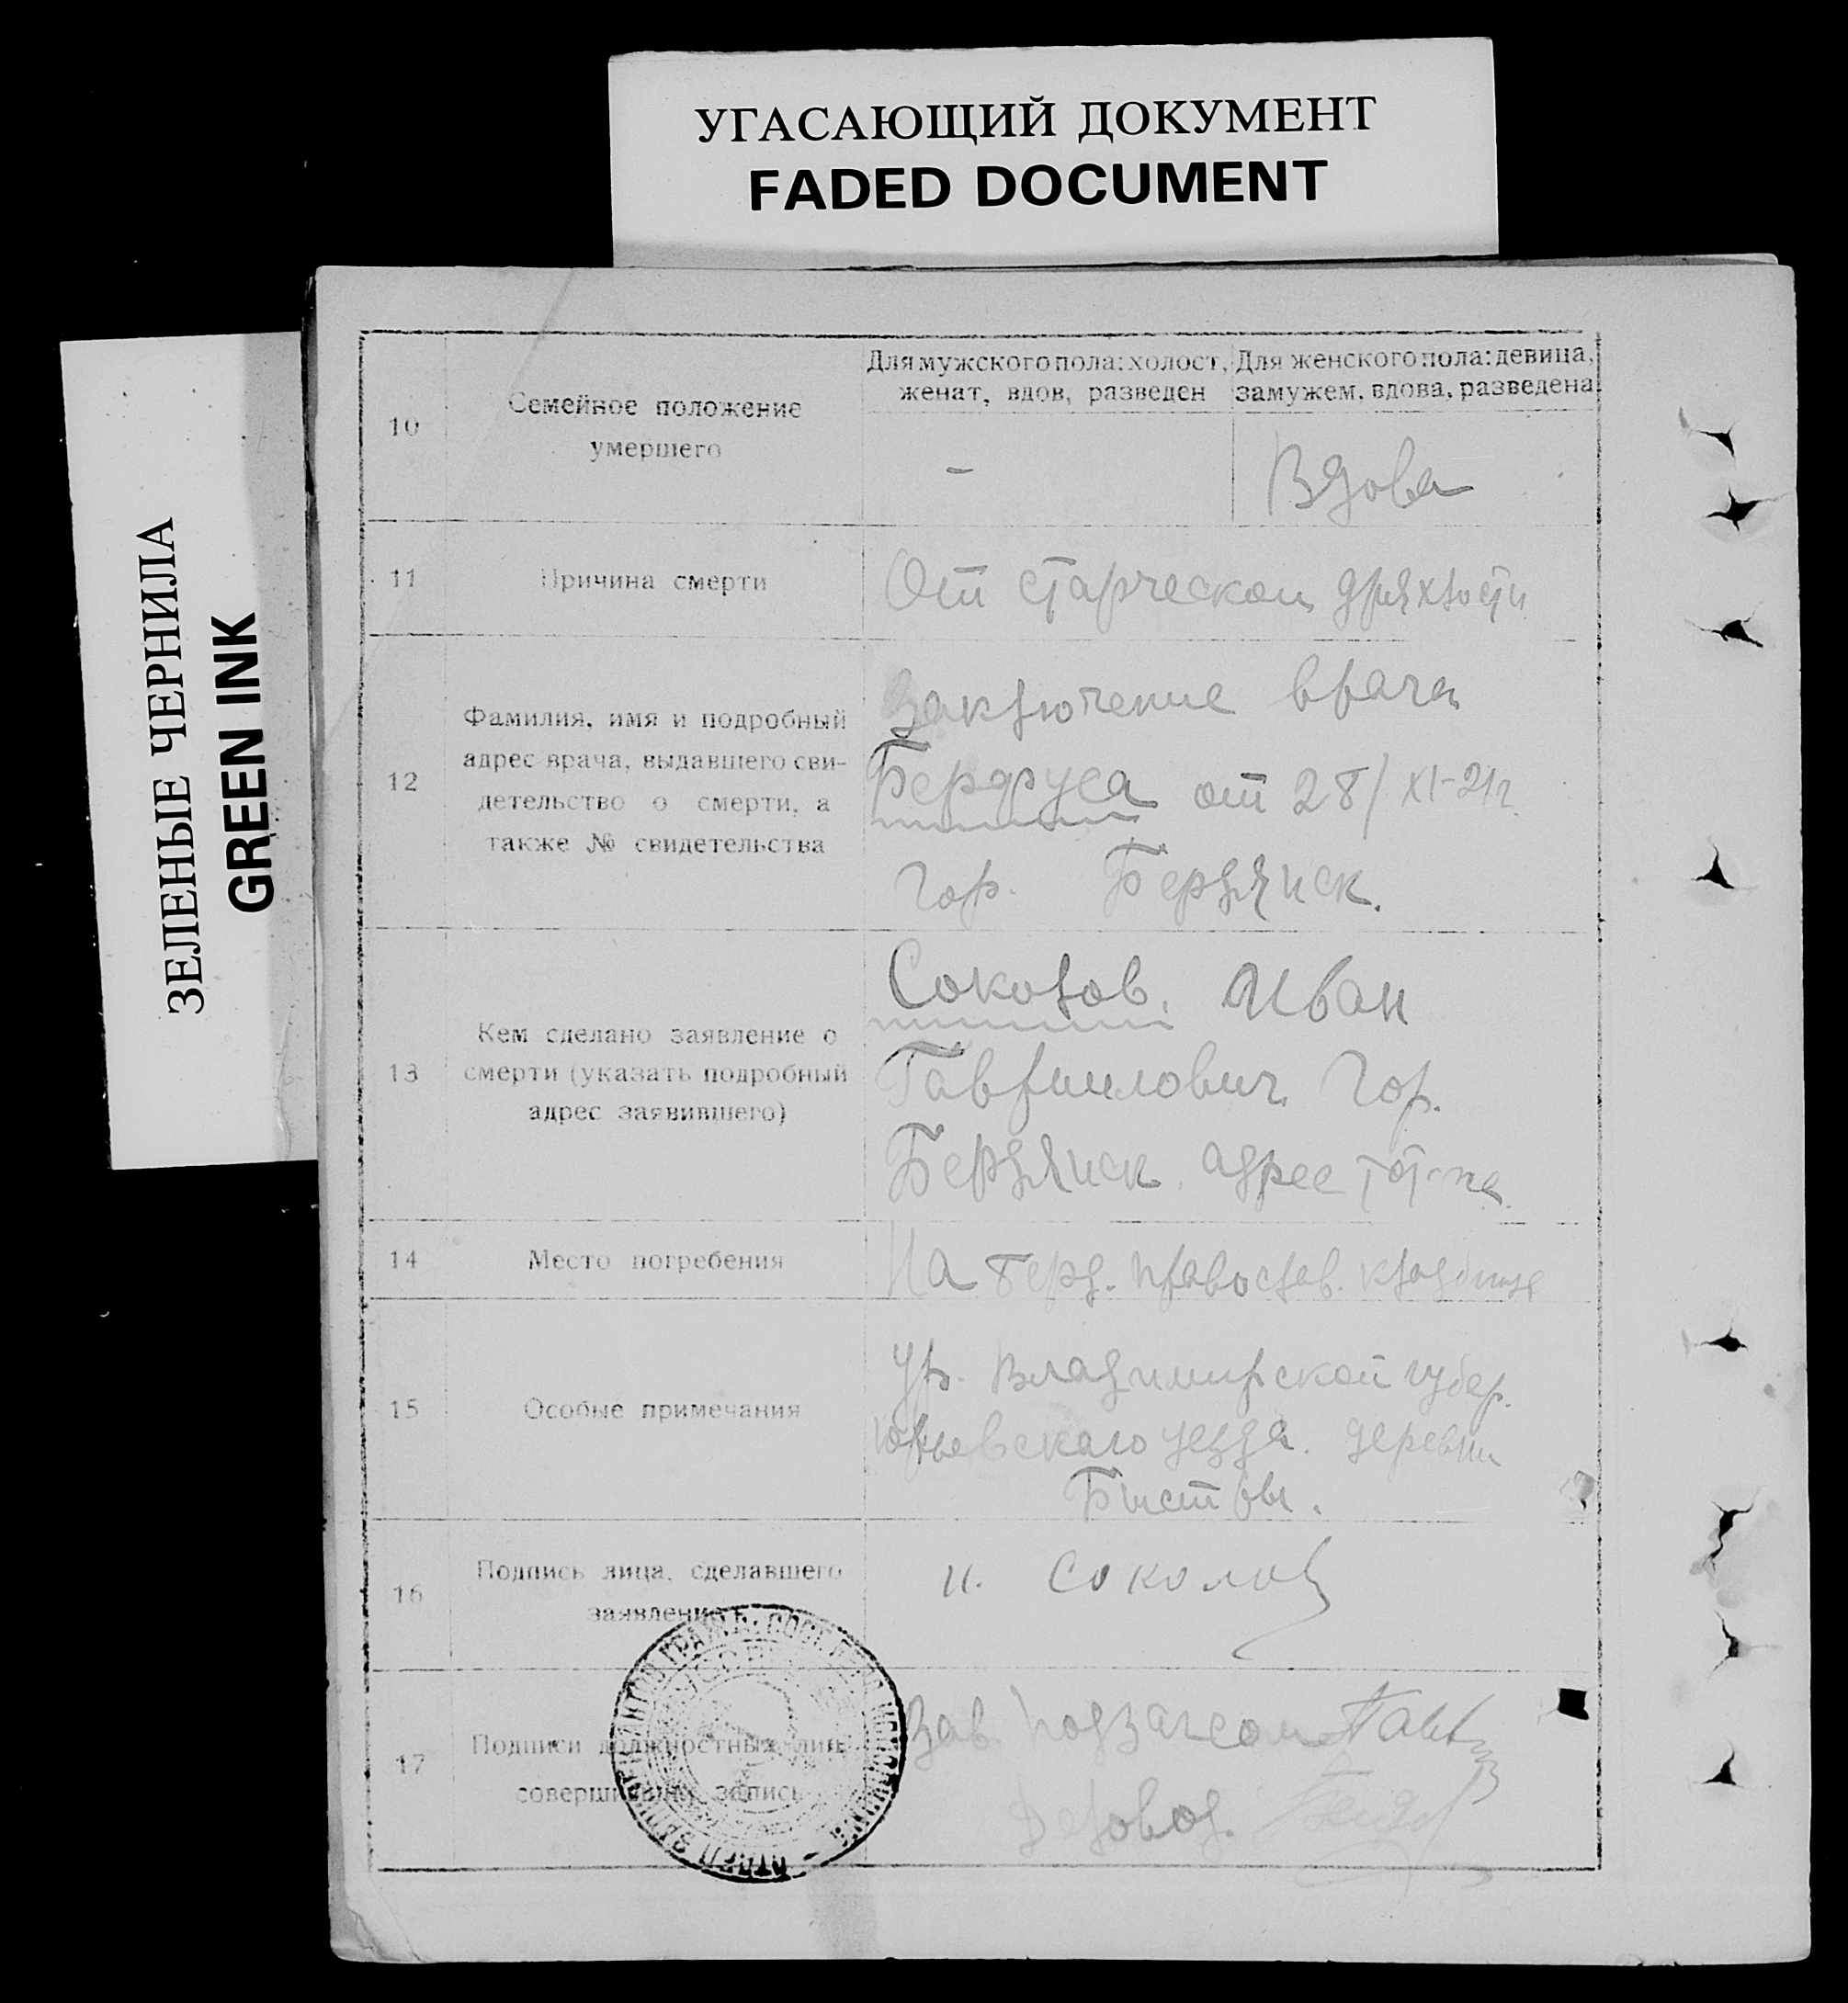 УГАСАЮЩИЙ ДОКУМЕНТ
FADED DOCUMENT
ЗЕЛЕНЫЕ ЧЕРНИЛА
GREEN INK
10
Семейное положение
умершего
Для мужского пола: холост,
женат, вдов, разведен
Для женского пола: девица,
замужем, вдова, разведена
–
Вдова
11
Причина смерти
От старческой дряхлости
12
Фамилия, имя и подробный
адрес врача, выдавшего сви-
детельство о смерти, а
также № свидетельства
Заключение врача
от 28/XI-21г.
Гор. Бердянск.
13
Кем сделано заявление о
смерти (указать подробный
адрес заявившего)
Соколов. Иван
Гавриилович. Гор.
Бердянск. адрес тот-же
14
Место погребения
На Берд. православ. кладбище
15
Особые примечания
ур. Владимирской губер.
Юрьевскаго уезда. деревни
16
Подпись лица, сделавшего
заявление
и. Соколов
17
Подписи должностных лиц,
совершивших запись
Зав. подзагсом
Деловод.